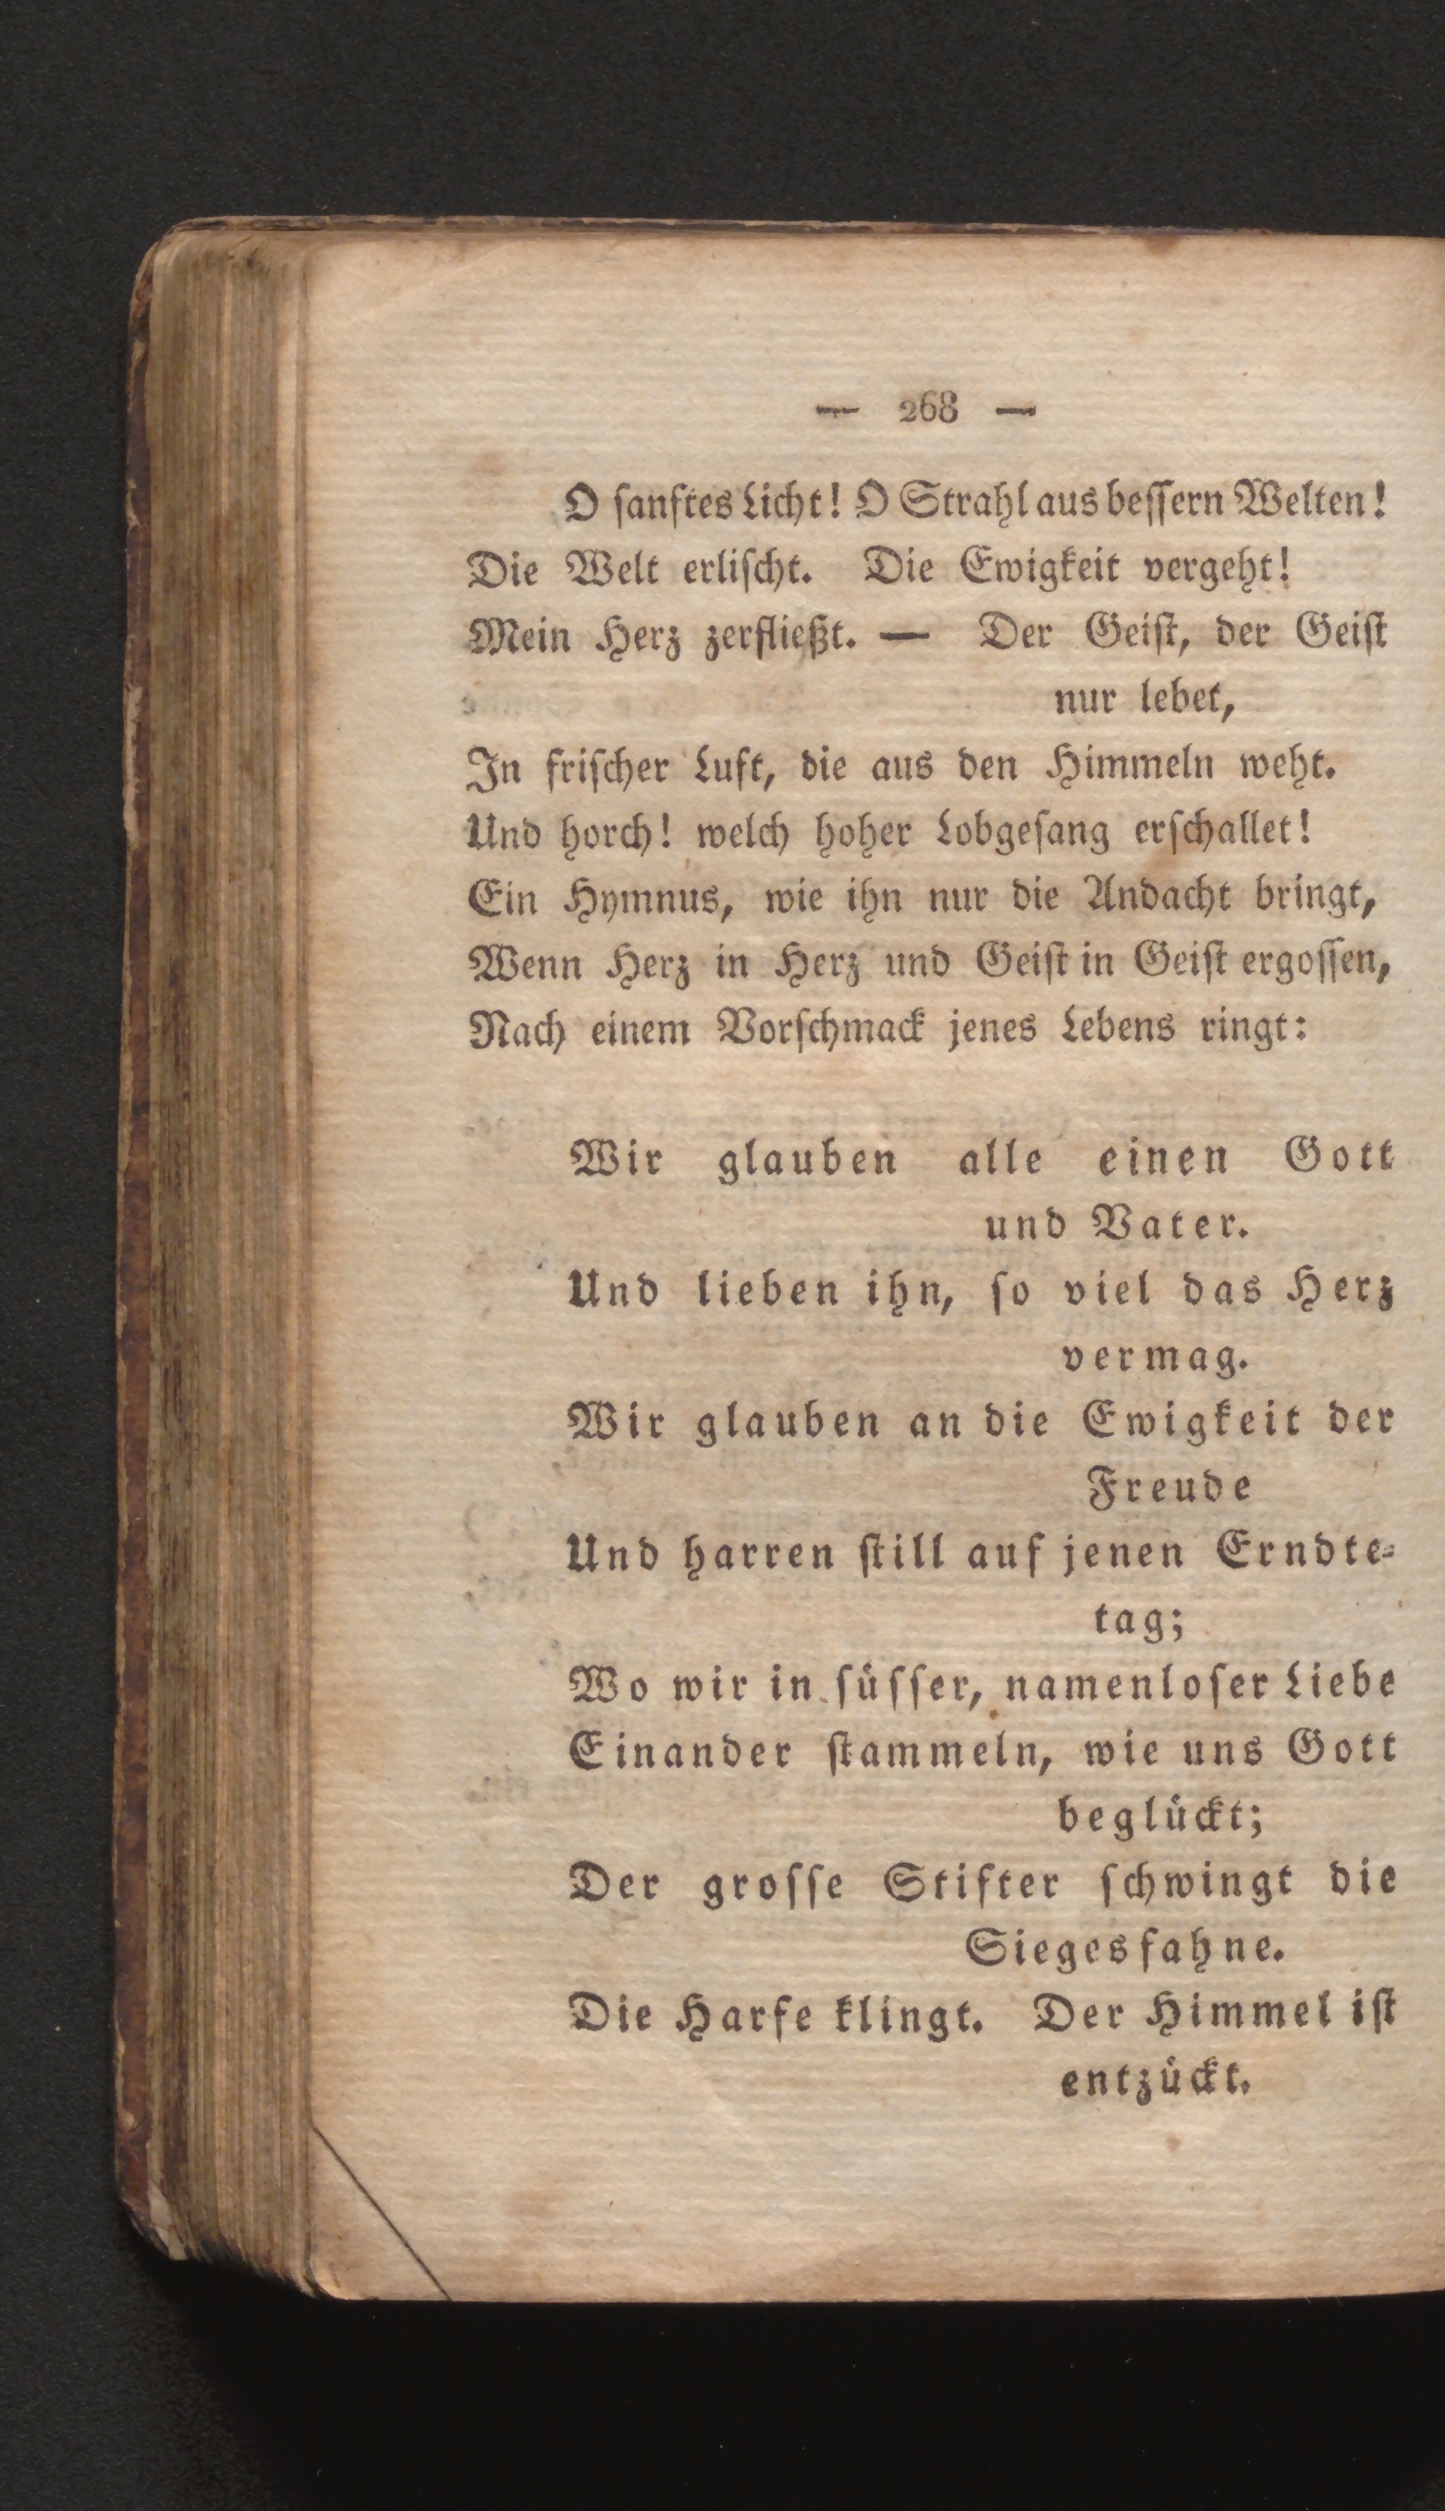 — 268 —
O ſanftes Licht! O Strahl aus beſſern Welten!
Die Welt erliſcht. Die Ewigkeit vergeht!
Mein Herz zerfließt. — Der Geiſt, der Geiſt
nur lebet,
In friſcher Luft, die aus den Himmeln weht.
Und horch! welch hoher Lobgeſang erſchallet!
Ein Hymnus, wie ihn nur die Andacht bringt,
Wenn Herz in Herz und Geiſt in Geiſt ergoſſen,
Nach einem Vorſchmack jenes Lebens ringt:
Wir glauben alle einen Gott
und Vater.
Und lieben ihn, ſo viel das Herz
vermag.
Wir glauben an die Ewigkeit der
Freude
Und harren ſtill auf jenen Erndte-
tag;
Wo wir in ſüſſer, namenloſer Liebe
Einander ſtammeln, wie uns Gott
beglückt;
Der groſſe Stifter ſchwingt die
Siegesfahne.
Die Harfe klingt. Der Himmel iſt
entzückt.